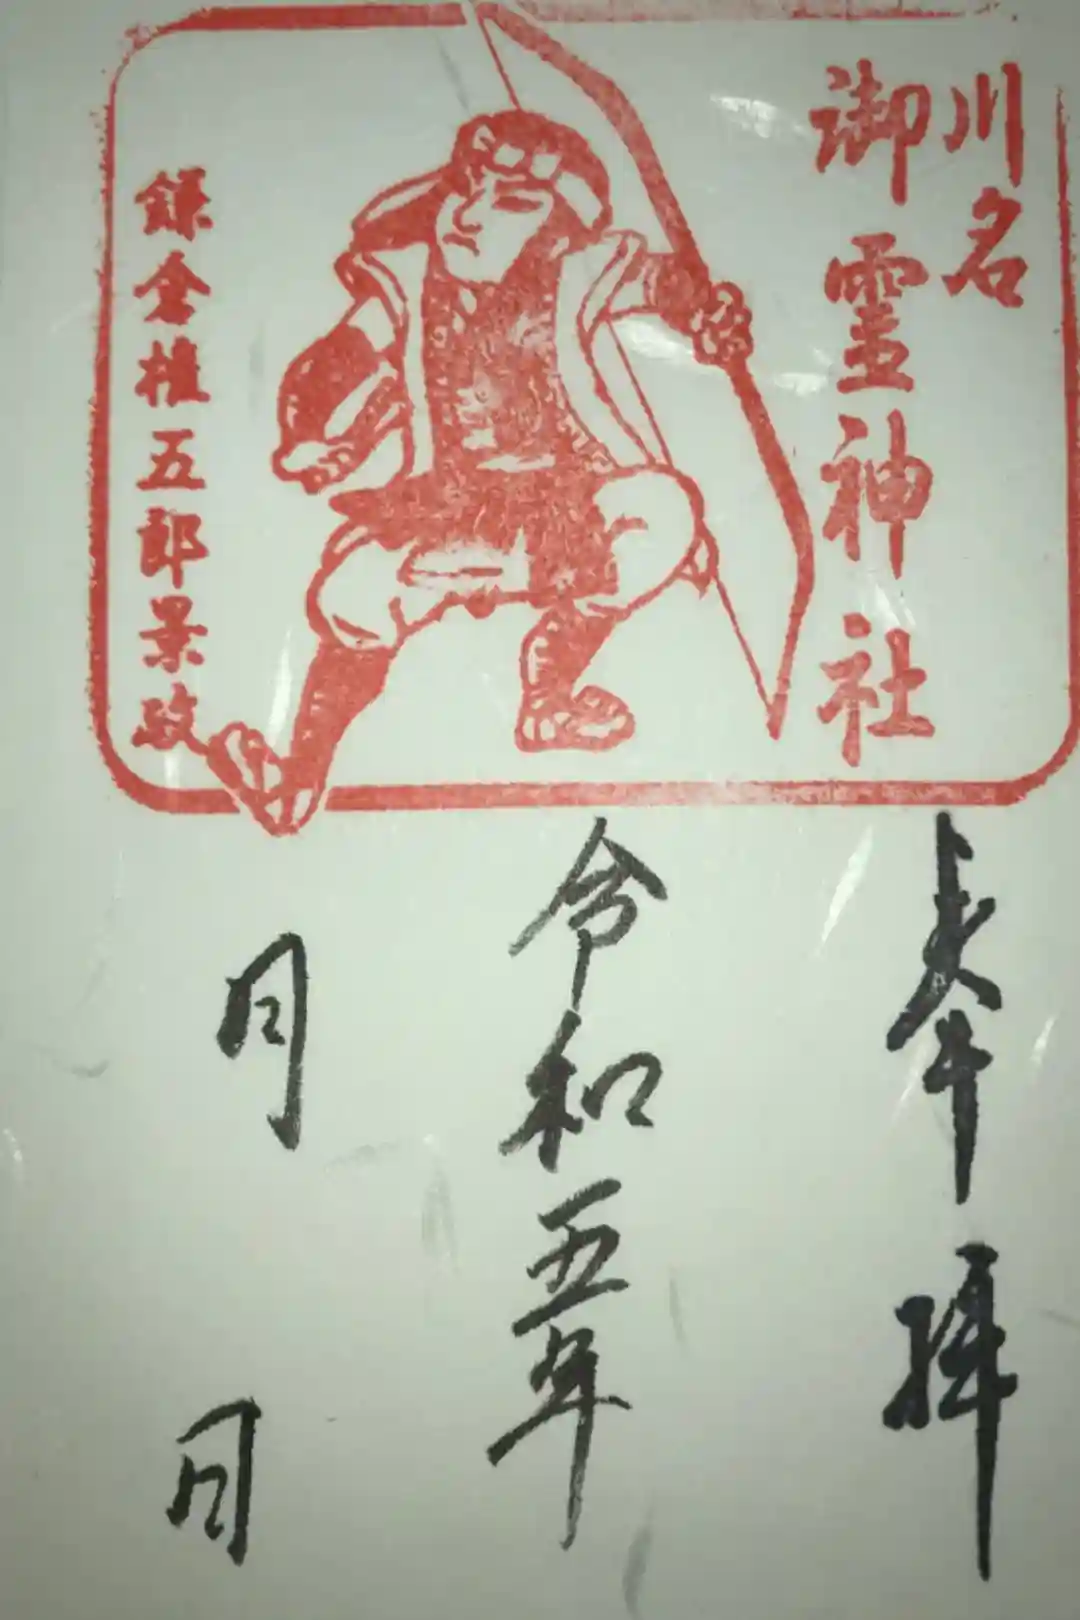 川名
御霊神社
鎌倉権五郎景政
奉拝
令和五年
月 日